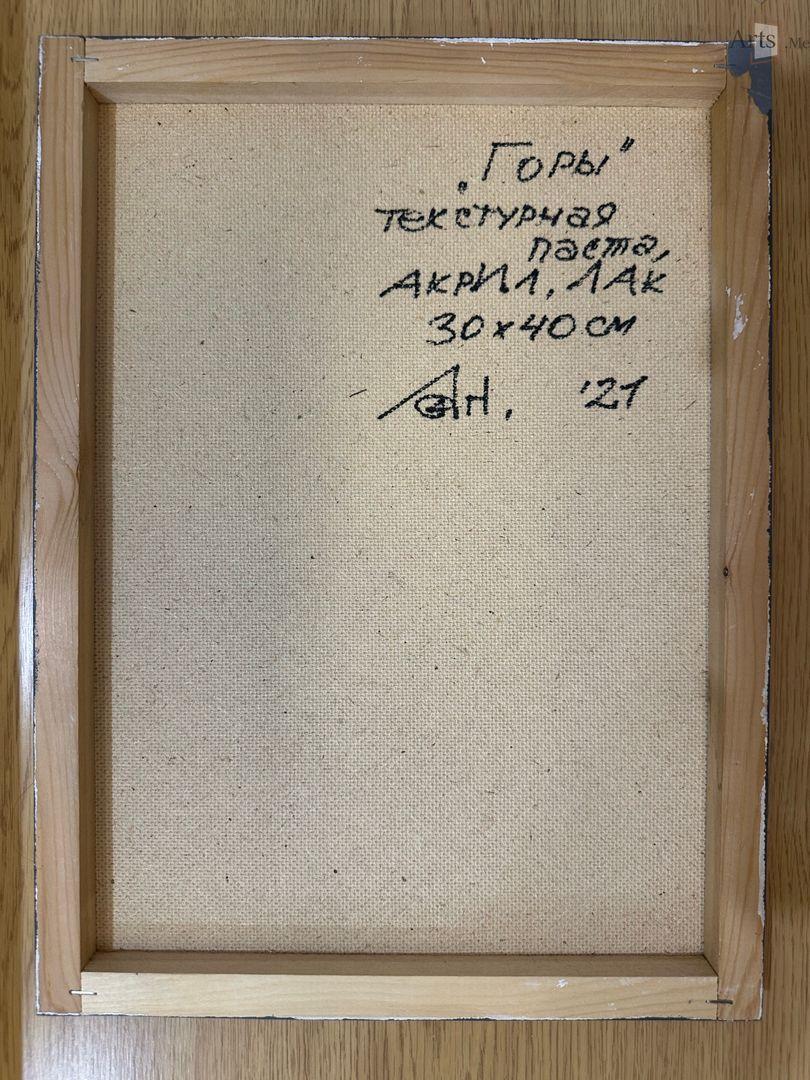 Arts .Me
„Горы"
текстурная
паста,
Акрил, ЛАк
30x40 см
'21